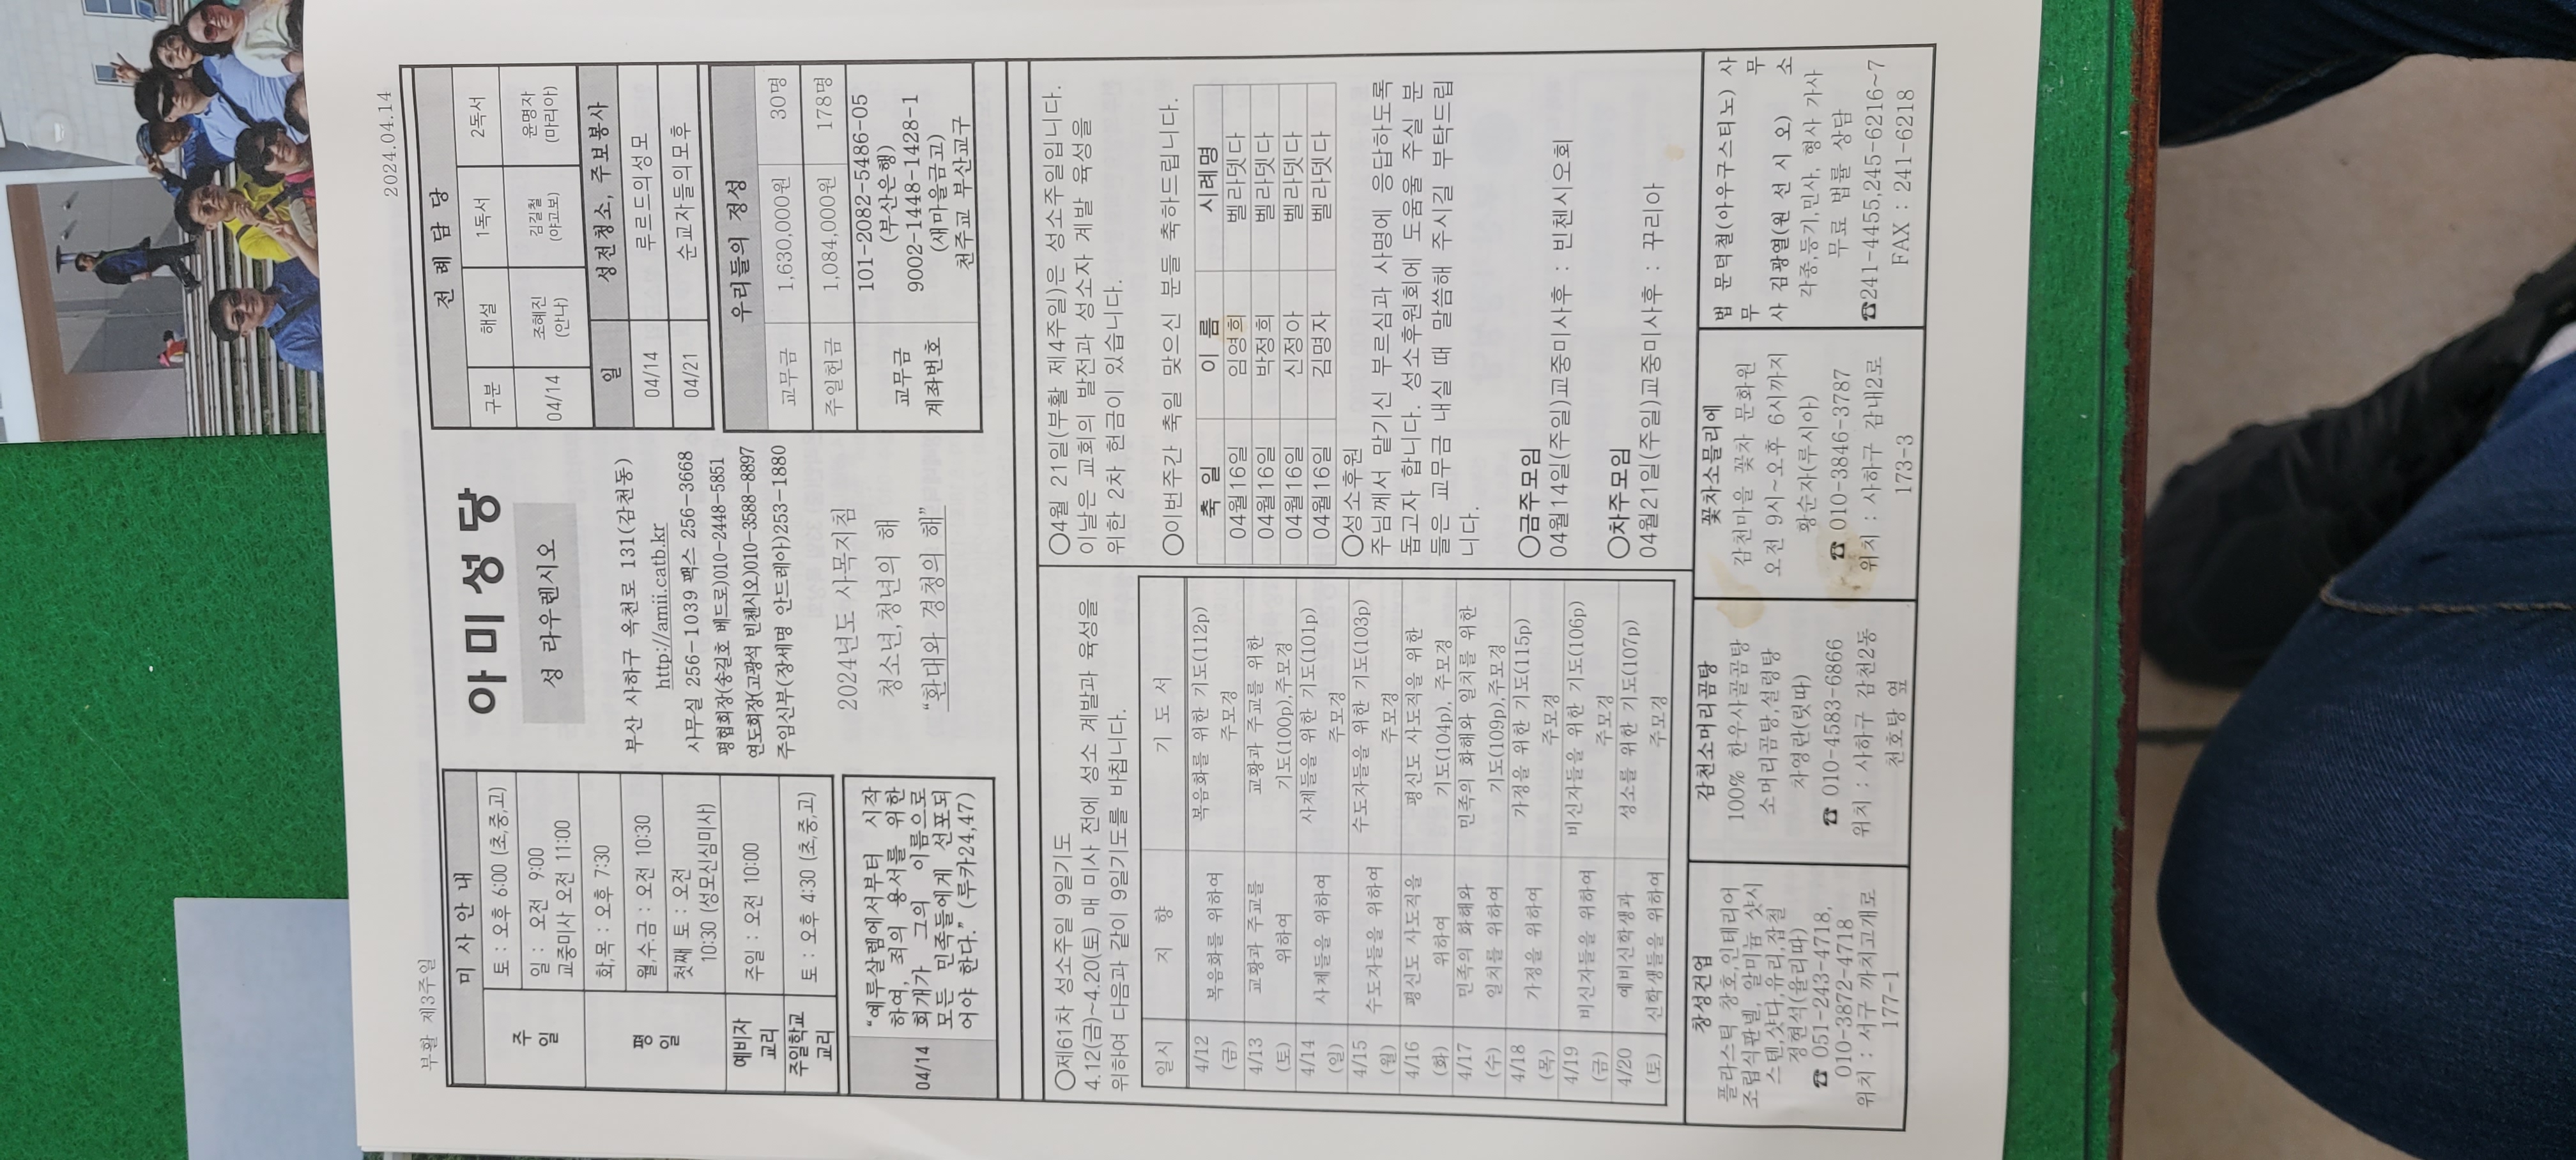 부활 제3주일
2024.04.14
미 사 안 내
주일
토 : 오후 6:00 (초,중,고)
일 : 오전 9:00
교중미사 오전 11:00
평일
화,목 : 오후 7:30
월,수,금 : 오전 10:30
첫째 토 : 오전
10:30 (성모신심미사)
예비자 교리
주일 : 오전 10:00
주일학교 교리
토 : 오후 4:30 (초,중,고)
04/14
“예루살렘에서부터 시작
하여, 죄의 용서를 위한
회개가 그의 이름으로
모든 민족들에게 선포되
어야 한다.” (루카24,47)
아 미 성 당
성 라우렌시오
부산 사하구 옥천로 131(감천동)
http://amii.catb.kr
사무실 256-1039 팩스 256-3668
평협회장(송길호 베드로)010-2448-5851
연도회장(고광석 빈첸시오)010-3588-8897
주임신부(장세명 안드레아)253-1880
2024년도 사목지침
청소년,청년의 해
“환대와 경청의 해”
전 례 담 당
구분 해설 1독서 2독서
04/14 조혜진(안나) 김길철(야고보) 윤명자(마리아)
일 성전청소, 주보봉사
04/14 루르드의성모
04/21 순교자들의모후
우리들의 정성
교무금 1,630,000원 30명
주일헌금 1,084,000원 178명
교무금
계좌번호
101-2082-5486-05
(부산은행)
9002-1448-1428-1
(새마을금고)
천주교 부산교구
○제61차 성소주일 9일기도
4.12(금)~4.20(토) 매 미사 전에 성소 계발과 육성을
위하여 다음과 같이 9일기도를 바칩니다.
일시 지 향 기 도 서
4/12 (금) 복음화를 위하여 복음화를 위한 기도(112p) 주모경
4/13 (토) 교황과 주교를 위하여 교황과 주교를 위한 기도(100p),주모경
4/14 (일) 사제들을 위하여 사제들을 위한 기도(101p) 주모경
4/15 (월) 수도자들을 위하여 수도자들을 위한 기도(103p) 주모경
4/16 (화) 평신도 사도직을 위하여 평신도 사도직을 위한 기도(104p), 주모경
4/17 (수) 민족의 화해와 일치를 위하여 민족의 화해와 일치를 위한 기도(109p),주모경
4/18 (목) 가정을 위하여 가정을 위한 기도(115p) 주모경
4/19 (금) 비신자들을 위하여 비신자들을 위한 기도(106p) 주모경
4/20 (토) 예비신학생과 신학생들을 위하여 성소를 위한 기도(107p) 주모경
○4월 21일(부활 제4주일)은 성소주일입니다.
이날은 교회의 발전과 성소자 계발 육성을
위한 2차 헌금이 있습니다.
○이번주간 축일 맞으신 분들 축하드립니다.
축 일 이 름 시례명
04월16일 임영희 벨라뎃다
04월16일 박정희 벨라뎃다
04월16일 신정아 벨라뎃다
04월16일 김명자 벨라뎃다
○성소후원
주님께서 맡기신 부르심과 사명에 응답하도록
돕고자 합니다. 성소후원회에 도움을 주실 분
들은 교무금 내실 때 말씀해 주시길 부탁드립
니다.
○금주모임
04월14일(주일)교중미사후 : 빈첸시오회
○차주모임
04월21일(주일)교중미사후 : 꾸리아
창성건업
플라스틱 창호,인테리어
조립식판넬, 알미늄 샷시
스텐,샷다,유리,잡철
정현석(율리따)
☎ 051-243-4718,
010-3872-4718
위치 : 서구 까치고개로
177-1
감천소머리곰탕
100% 한우사골곰탕
소머리곰탕,설렁탕
차영란(릿따)
☎ 010-4583-6866
위치 : 사하구 감천2동
천호탕 옆
꽃차소믈리에
감천마을 꽃차 문화원
오전 9시~오후 6시까지
황순자(루시아)
☎ 010-3846-3787
위치 : 사하구 감내2로
173-3
법 문덕철(아우구스티노) 사
무 무
사 김광열(원 선 시 오) 소
각종,등기,민사, 형사 가사
무료 법률 상담
☎241-4455,245-6216~7
FAX : 241-6218